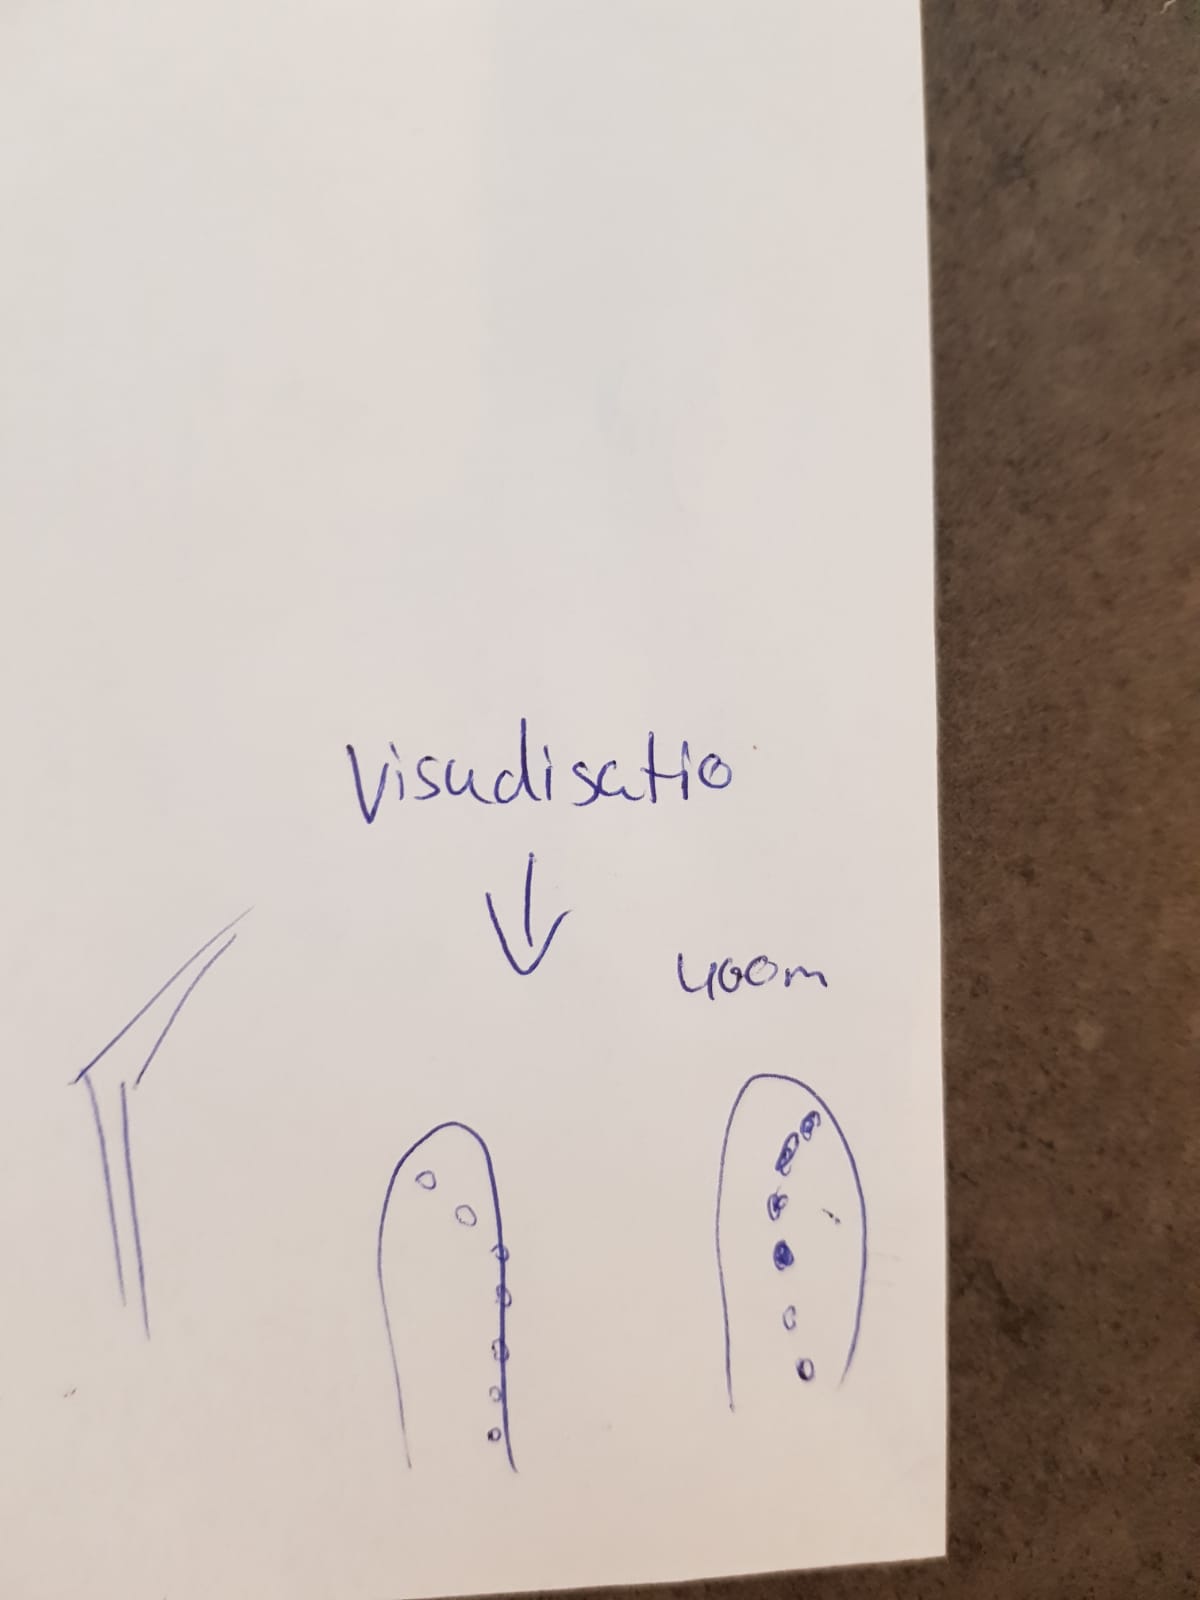 Visudisatio
400m